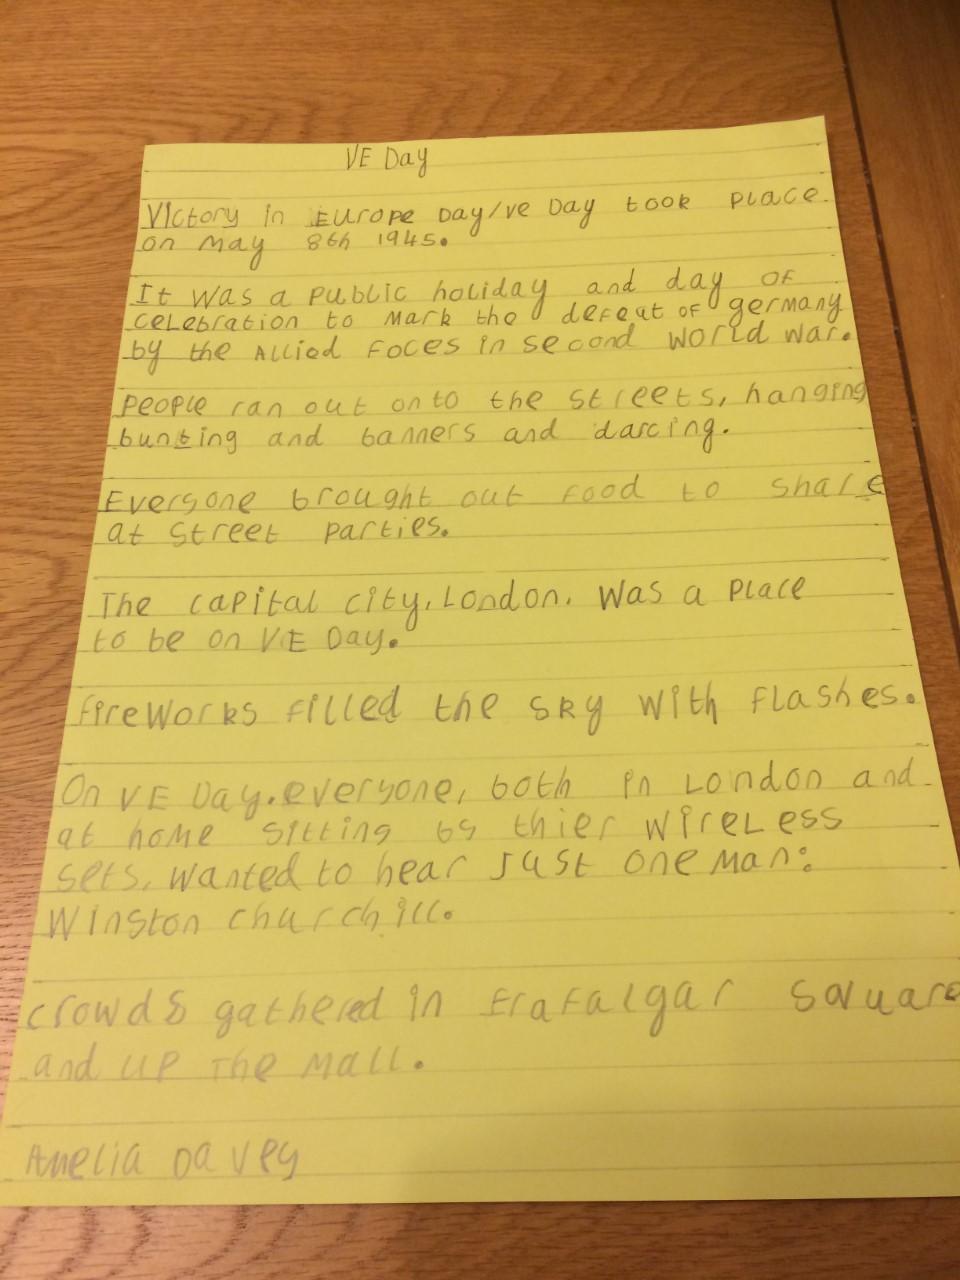 VE Day
Victory in Europe Day/ve Day took place
on may 8th 1945.
It was a public holiday and day of
celebration to mark the defeat of germany
by the Allied foces in second world war.
people ran out onto the streets, hanging
bunting and banners and darcing.
Everyone brought out food to share
at street parties.
The capital city, London, was a place
to be on VE Day.
fireworks filled the sky with flashes.
On VE Day. everyone, both in London and
at home sitting by thier wireless
sets, wanted to hear just one man:
Winston churchill.
crowds gathered in trafalgar square
and up The mall.
Amelia Davey